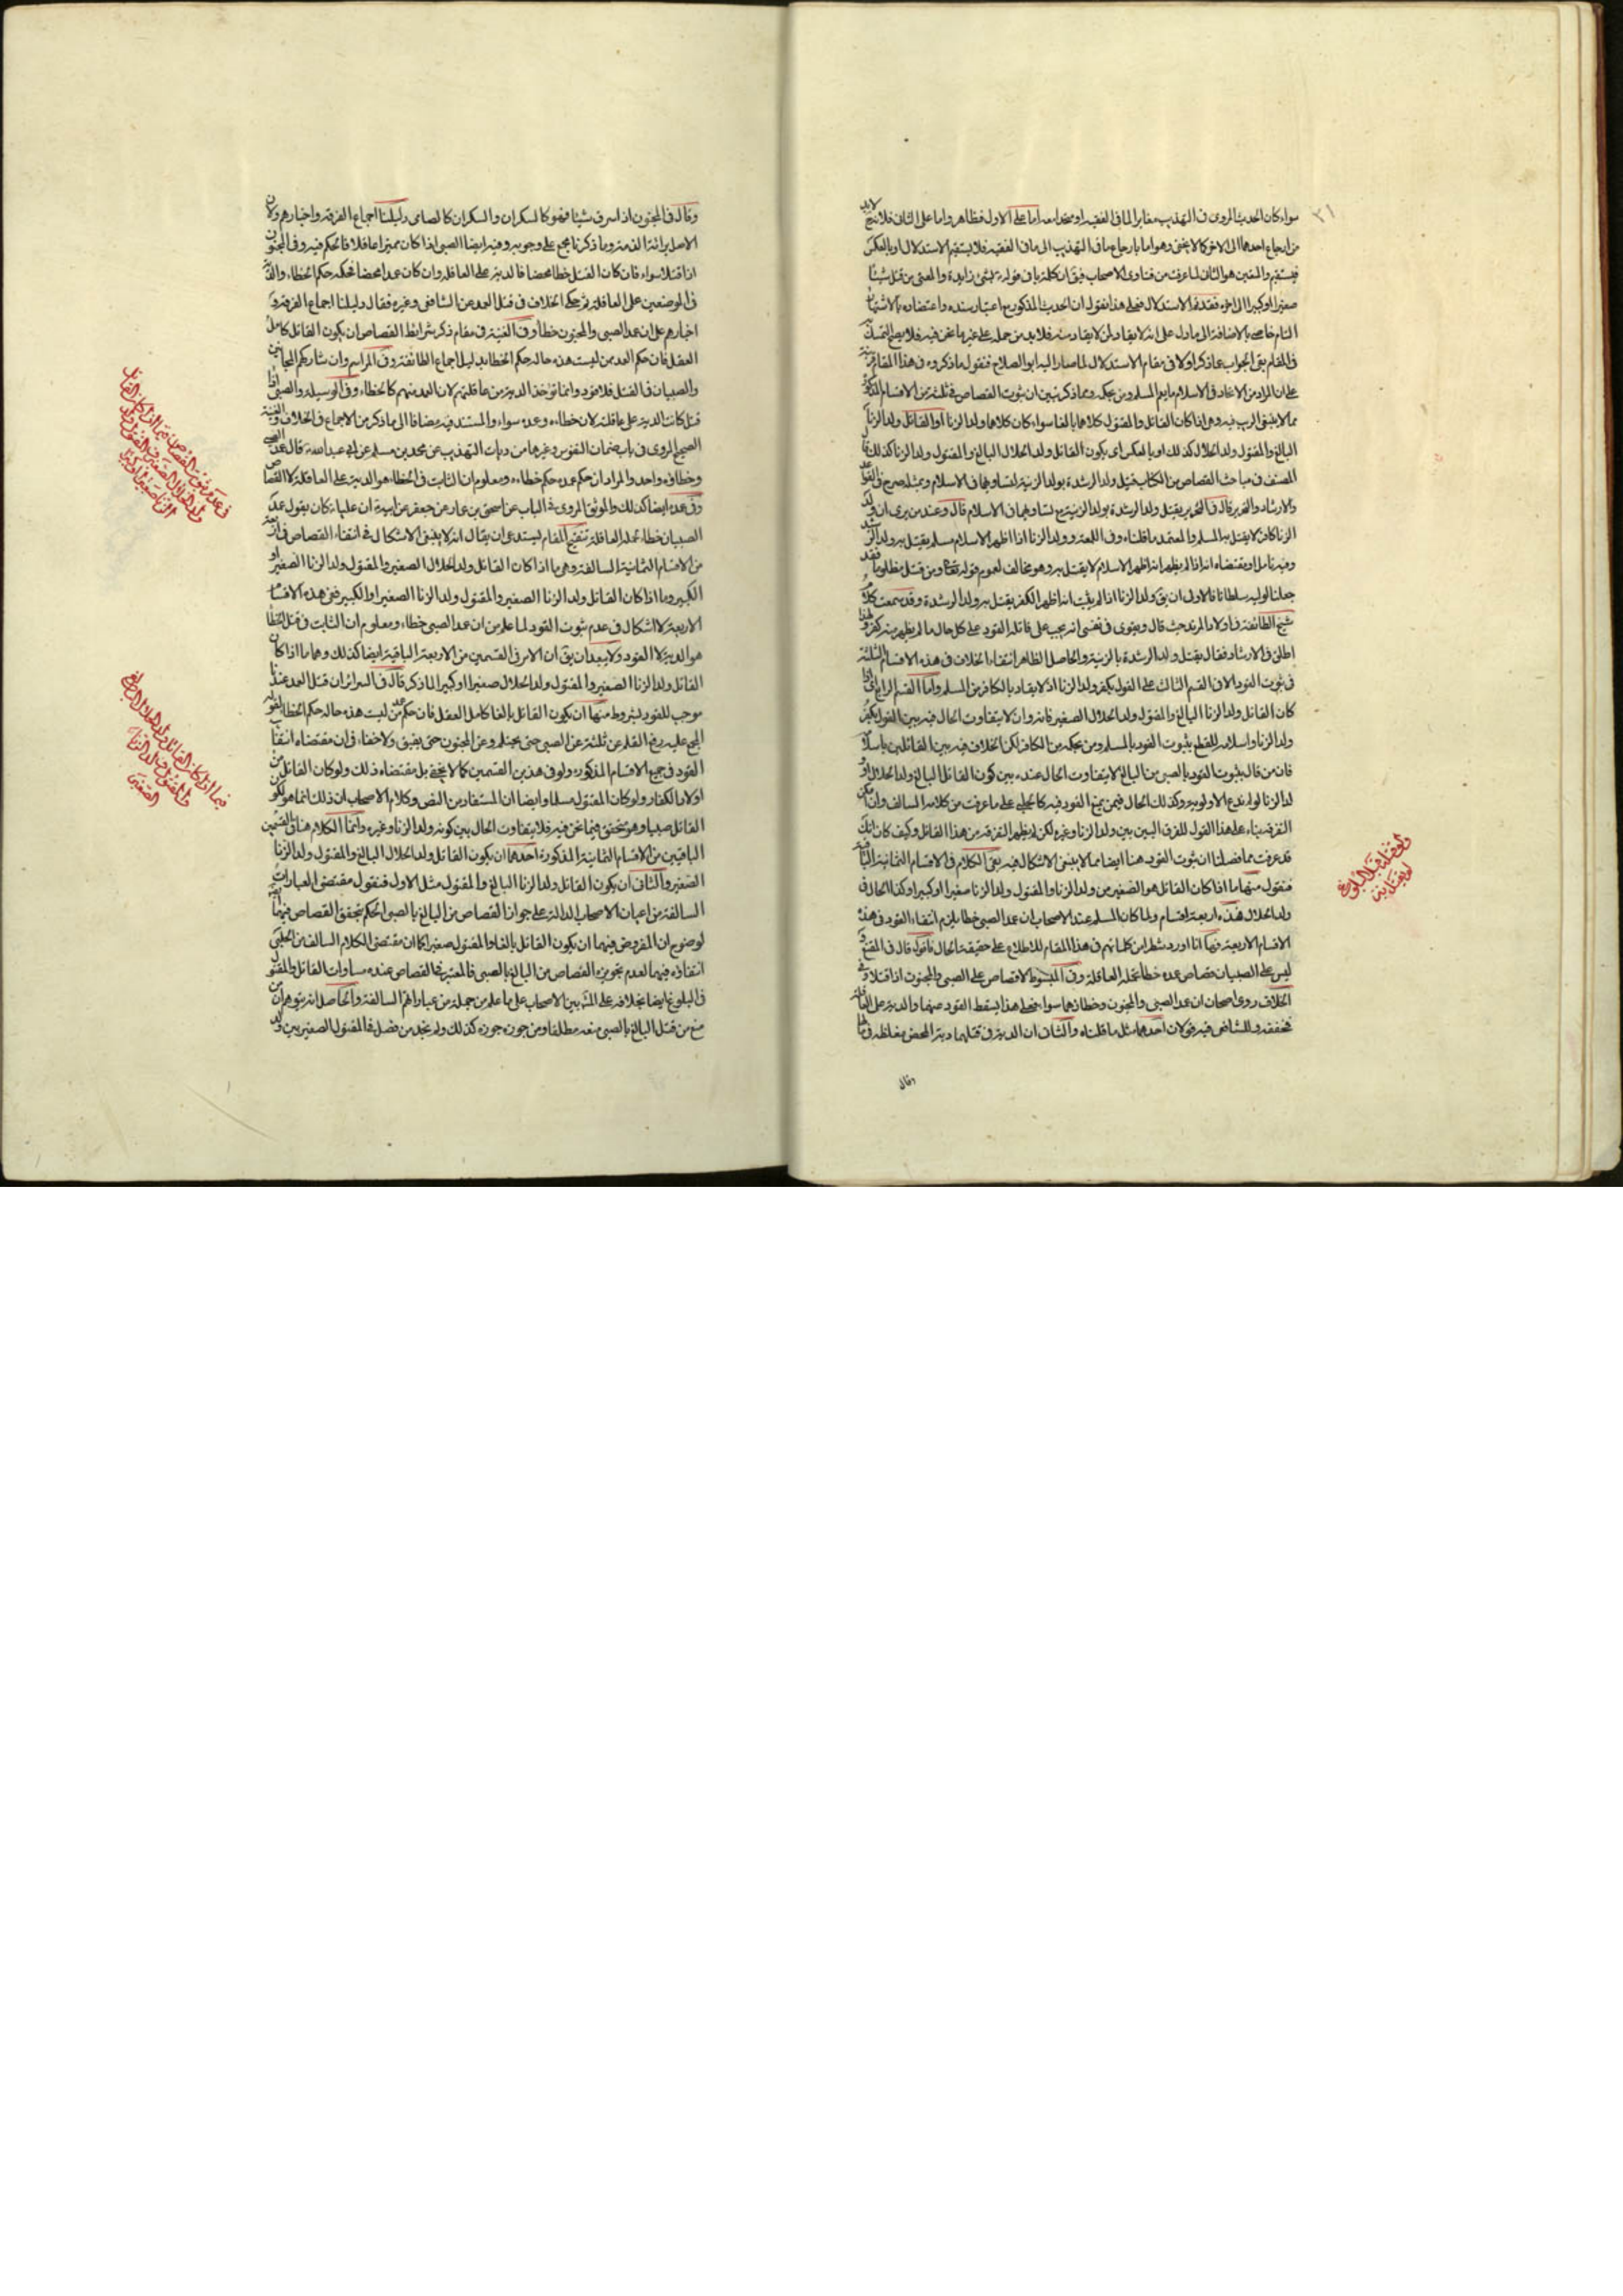 سواء كان الحديث المروى فى التهذيب مغايرا لما فى الفقيه او متحدا معه اما على الاول فظاهر واما على الثانى فلانه لابد
من ارجاع احدهما الى الاخر كما لا يخفى وهو اما بارجاع ما فى التهذيب الى ما فى الفقيه فلا يستقيم الاستدلال او بالعكس
فيستقيم والمتعين هو الثانى لما عرفت من فتاوى الاصحاب فيق ان كلمة با فى قوله بشئ زايدة والمعنى من قتل شيئا
صغيرا او كبيرا الى اخره فقد تم الاستدلال فعلى هذا نقول ان الحديث المذكور مع اعتبار سنده واعتضاده بالاشتهار
التام خاص بالاضافة الى ما دل على انه لا يقاد لمن لا يقاد منه فلا بد من حمله على غير ما نحن فيه فلا يصح التمسك به
فى المقام بقى الجواب عما ذكر اولا فى مقام الاستدلال لما صار اليه ابو الصلاح فنقول ما ذكروه فى هذا المقام قرينة
على ان المراد من الاتحاد فى الاسلام ما يعم المسلم ومن بحكمه ومما ذكر تبين ان ثبوت القصاص فى ثلثة من الاقسام المذكورة
مما لا ينبغى الريب فيه وهى اذا كان القاتل والمقتول كلاهما بالغا سواء كان كلاهما ولد الزنا او القاتل ولد الزنا
البالغ والمقتول ولد الحلال كذلك او بالعكس اى يكون القاتل ولد الحلال البالغ والمقتول ولد الزنا كذلك قال
المصنف فى مباحث القصاص من الكتاب قتيل ولد الرشدة بولد الزنية لتساويهما فى الاسلام وبمثله صرح فى القواعد
والارشاد والتحرير قال فى التحرير يقتل ولد الرشدة بولد الزنية مع تساويهما فى الاسلام قال وعند من يرى ان ولد
الزنا كافر لا يقتل به المسلم والمعتمد ما قلناه وفى اللمعة وولد الزنا اذا اظهر الاسلام مسلم يقتل به ولد الرشدة
وفيه تامل اذ مقتضاه انه اذا لم يظهر انه اظهر الاسلام لا يقتل به وهو مخالف لعموم قوله تعالى ومن قتل مظلوما فقد
جعلنا لوليه سلطانا فالاولى ان يق ولد الزنا اذا لم يثبت انه اظهر الكفر يقتل به ولد الرشدة وقد سمعت كلام
شيخ الطائفة فى اولاد المرتد حيث قال ويقوى فى نفسى انه يجب على قاتله القود على كل حال ما لم يظهر منه كفر ولهذا
اطلق فى الارشاد فقال يقتل ولد الرشدة بالزنية والحاصل الظاهر انتفاء الخلاف فى هذه الاقسام الثلثة
فى ثبوت القود الا فى القسم الثالث على القول بكفر ولد الزنا اذ لا يقاد بالكافر من المسلم واما القسم الرابع اى اذا
كان القاتل ولد الزنا البالغ والمقتول ولد الحلال الصغير فانه وان لا يتفاوت الحال فيه بين القول بكفر
ولد الزنا واسلامه للقطع بثبوت القود بالمسلم ومن بحكمه من الكافر لكن الخلاف فيه بين القائلين باسلامه
فان من قال بثبوت القود بالصبى من البالغ لا يتفاوت الحال عنده بين كون القاتل البالغ ولد الحلال او
لد الزنا لو لم ندع الاولوية وكذلك الحال فيمن يمنع القود فيه كالحلبى على ما عرفت من كلامه السالف وان امكن
التفرقة بناء على هذا القول للفرق البين بين ولد الزنا وغيره لكن لم يظهر التفرقة من هذا القائل وكيف كان انك
قد عرفت مما فصلنا ان ثبوت القود هنا ايضا مما لا ينبغى الاشكال فيه بقى الكلام فى الاقسام الثمانية الباقية
فنقول منها ما اذا كان القاتل هو الصغير من ولد الزنا والمقتول ولد الزنا صغيرا او كبيرا وكذا الحال فى
ولد الحلال فهذه اربعة اقسام ولما كان المسلم عند الاصحاب ان عمد الصبى خطا يلزم انتفاء القود فى هذه
الاقسام الاربعة فهاك انا اورد شطرا من كلماتهم فى هذا المقام للاطلاع على حقيقة الحال فاقول قال فى المقنع و
ليس على الصبيان قصاص عمده خطا تحمله العاقلة وفى المبسوط لا قصاص على الصبى والمجنون اذا قتلا وفى
الخلاف روى اصحابنا ان عمد الصبى والمجنون وخطاؤهما سواء فعلى هذا يسقط القود عنهما والدية على العاقلة
مخففة وللشافعى فيه قولان احدهما مثل ما قلناه والثانى ان الدية فى قتلهما دية العمد المحض مغلظة فى مالهما
وقال
ولو قتل قبل البلوغ
لم يقتل به
وقال فى المجنون اذا سرق شيئا فهو كالسكران والسكران كالصاحى دليلنا اجماع الفرقة واخبارهم ولان
الاصل برائة الذمة وما ذكرنا مجمع على وجوبه وفيه ايضا الصبى اذا كان مميزا عاقلا فالحكم فيه وفى المجنون
اذا قتلا سواء فان كان القتل خطا محضا فالدية على العاقلة وان كان عمدا محضا فحكمه حكم الخطاء والدية
فى الموضعين على العاقلة ثم حكى الخلاف فى قتل العمد عن الشافعى وغيره فقال دليلنا اجماع الفرقة و
اخبارهم على ان عمد الصبى والمجنون خطا وفى الغنية فى مقام ذكر شرايط القصاص ان يكون القاتل كامل
العقل فان حكم العمد ممن ليست هذه حاله حكم الخطا بدليل اجماع الطائفة وفى المراسم وان شاركهم المجانين
والصبيان فى القتل فلا قود وانما تؤخذ الدية من عاقلتهم لان العمد منهم كالخطاء وفى الوسيلة والصبى اذا
قتل كانت الدية على عاقلته لان خطاءه وعمده سواء والمستند فيه مضافا الى ما ذكر من الاجماع فى الخلاف والغنية
الصحيح المروى فى باب ضمان النفوس وغيرها من ديات التهذيب عن محمد بن مسلم عن ابى عبد الله ع قال عمد الصبى
وخطاؤه واحد والمراد ان حكم عمده حكم خطاءه ومعلوم ان الثابت فى الخطاء هو الدية على العاقلة لا القصاص
وفى عمده ايضا كذلك والموثق المروى فى الباب عن اسحق بن عمار عن جعفر عن ابيه ان عليا ع كان يقول عمد
الصبيان خطاء تحمله العاقلة تنقيح المقام يستدعى ان يقال انه لا ينبغى الاشكال فى انتفاء القصاص فى اربعة
من الاقسام الثمانية السالفة وهى ما اذا كان القاتل ولد الحلال الصغير والمقتول ولد الزنا الصغير او
الكبير وما اذا كان القاتل ولد الزنا الصغير والمقتول ولد الزنا الصغير او الكبير ففى هذه الاقسام
الاربعة لا اشكال فى عدم ثبوت القود لما علم من ان عمد الصبى خطاء ومعلوم ان الثابت فى قتل الخطا
هو الدية لا القود ولا يبعد ان يق ان الامر فى القسمين من الاربعة الباقية ايضا كذلك وهما ما اذا كان
القاتل ولد الزنا الصغير والمقتول ولد الحلال صغيرا او كبيرا لما ذكر قال فى السرائر ان قتل العمد عندنا
موجب للقود بشروط منها ان يكون القاتل بالغا كامل العقل فان حكم عمد من ليست هذه حاله حكم الخطا لقوله
المجمع عليه رفع القلم عن ثلثة عن الصبى حتى يحتلم وعن المجنون حتى يفيق ولا خفاء فى ان مقتضاه انتفاء
القود فى جميع الاقسام المذكورة ولو فى هذين القسمين كما لا يخفى بل مقتضاه ذلك ولو كان القاتل من
اولاد الكفار ولو كان المقتول مسلما وايضا ان المستفاد من النص وكلام الاصحاب ان ذلك انما هو لكون
القاتل صبيا وهو متحقق فيما نحن فيه فلا يتفاوت الحال بين كونه ولد الزنا وغيره وانما الكلام هنا فى القسمين
الباقيين من الاقسام الثمانية المذكورة احدهما ان يكون القاتل ولد الحلال البالغ والمقتول ولد الزنا
الصغير والثانى ان يكون القاتل ولد الزنا البالغ والمقتول مثل الاول فنقول مقتضى العبارات
السالفة من اعيان الاصحاب الدالة على جواز القصاص من البالغ بالصبى الحكم بتحقق القصاص فيهما ايضا
لوضوح ان المفروض فيهما ان يكون القاتل بالغا والمقتول صغيرا كما ان مقتضى الكلام السالف من الحلبى
انتفاؤه فيهما لعدم تجويزه القصاص من البالغ بالصبى فالمعتبر فى القصاص عنده مساوات القاتل والمقتول
فى البلوغ ايضا بخلافه على المشهور بين الاصحاب على ما علم من جملة من عباراتهم السالفة والحاصل انه يتوهم ان من
منع من قتل البالغ بالصبى منعه مطلقا ومن جوزه جوزه كذلك ولم نجد من فصل فى المقتول الصغير بين ولد
فى عدم ثبوت القصاص فيما اذا كان القاتل
ولد الحلال الصغير والمقتول ولد
الزنا صغيرا او كبيرا
فيما اذا كان القاتل ولد الحلال البالغ
والمقتول ولد الزنا
الصغير